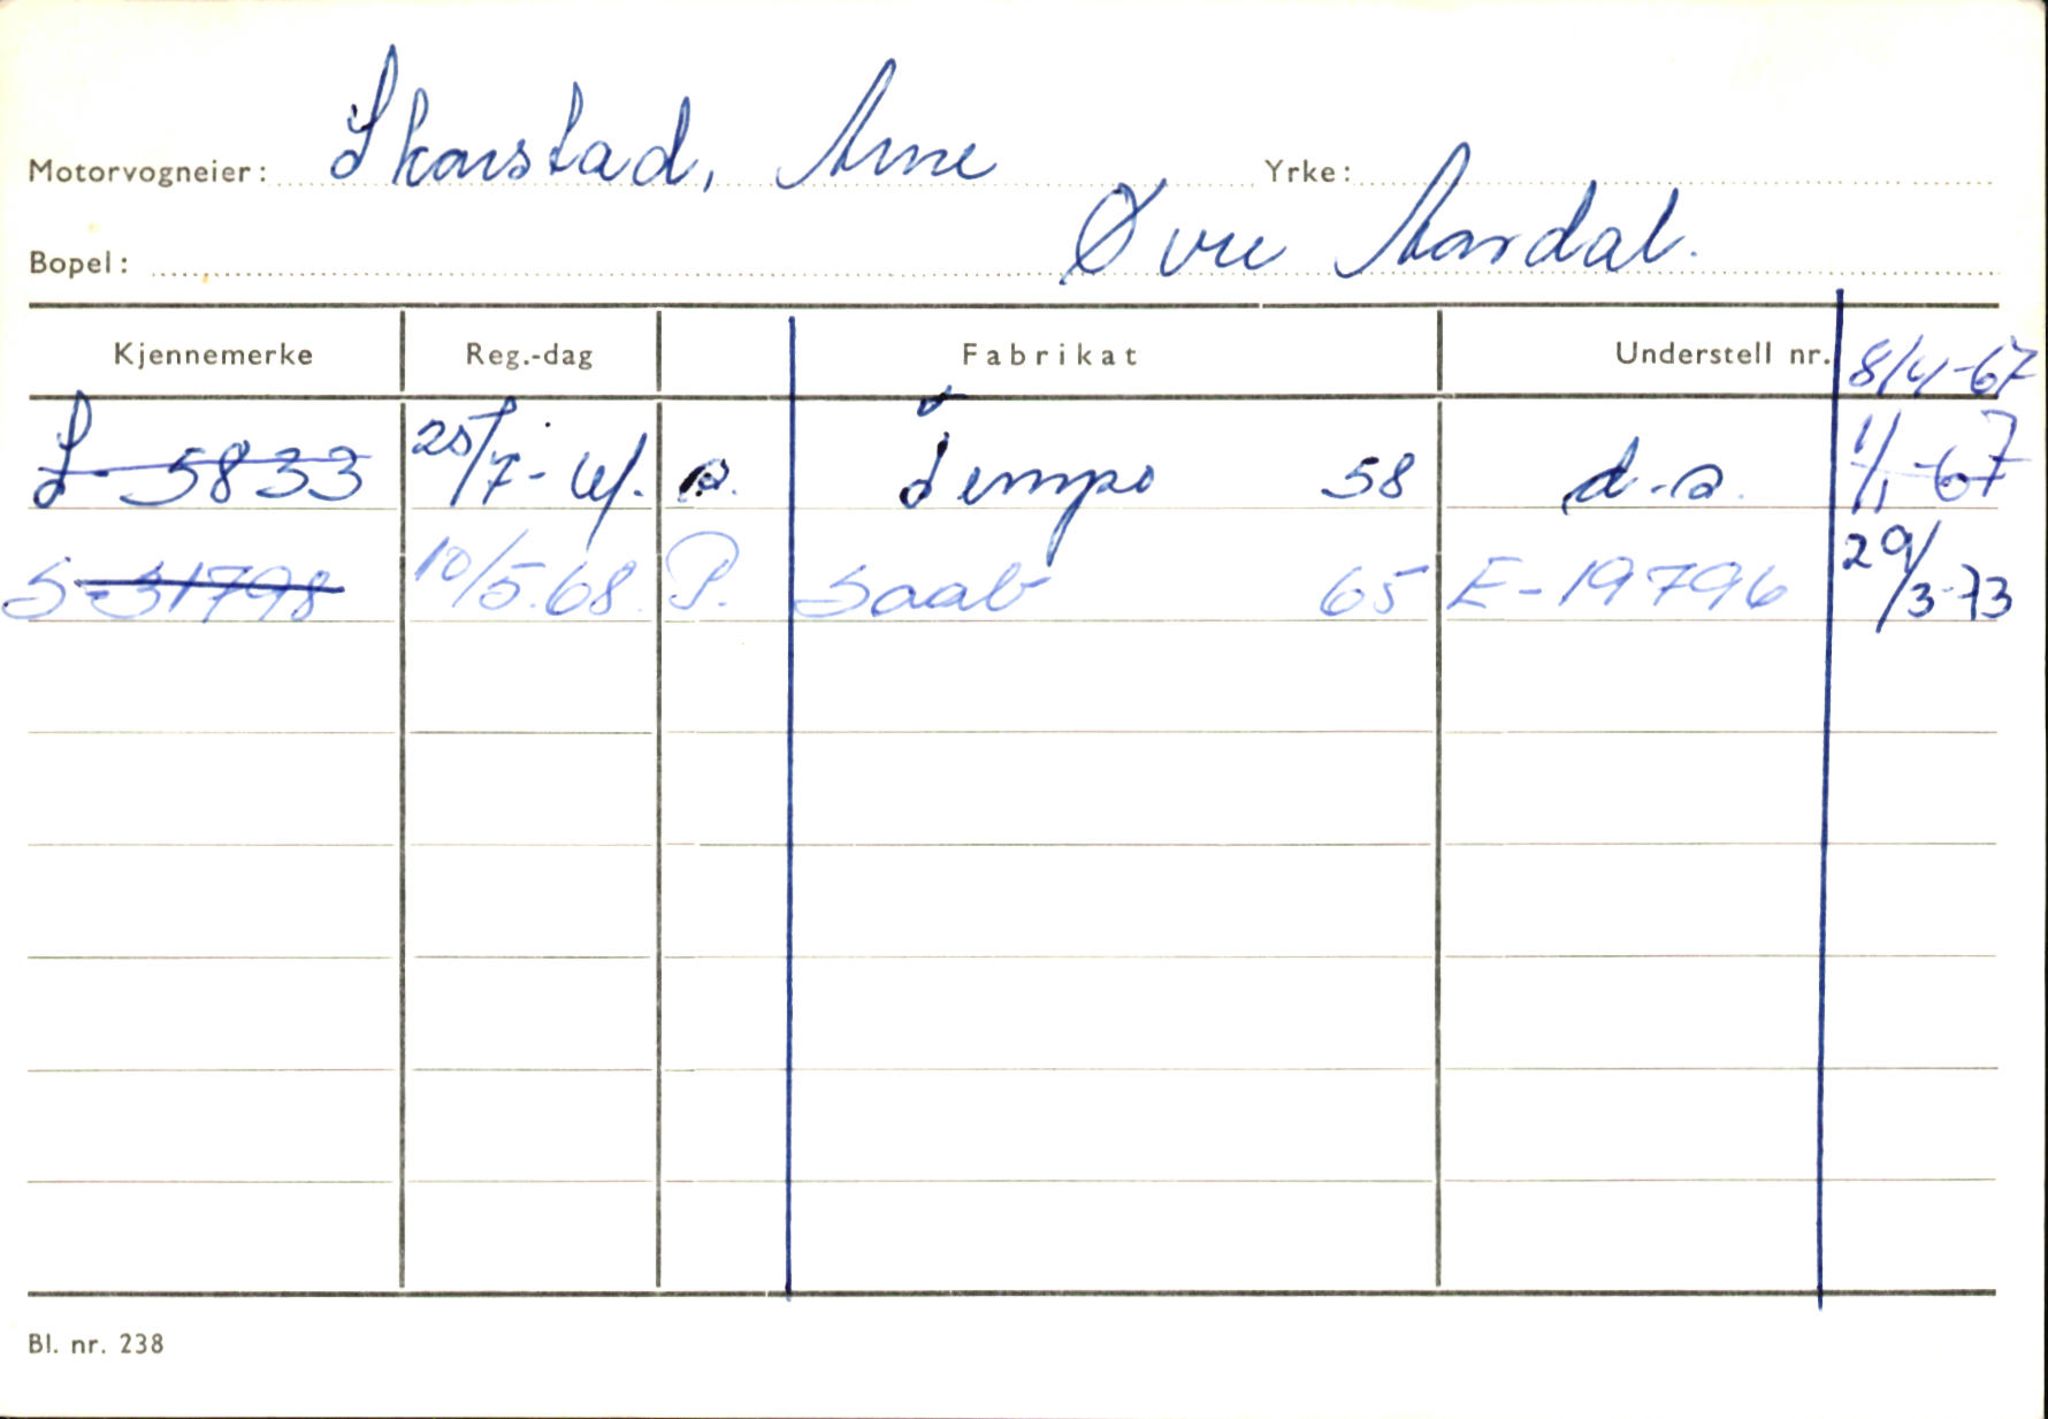 Motorvogneier: Skarstad, Arne Yrke:
Bopel: Øvre Aardal.
Kjennemerke Reg.-dag Fabrikat Understell nr. 8/4-67
S-5833 25/7-61. Tempo 58 d.s. 1/1-67
S-31798 10/5.68. P. Saab 65 E-19796 29/3-73
Bl. nr. 238